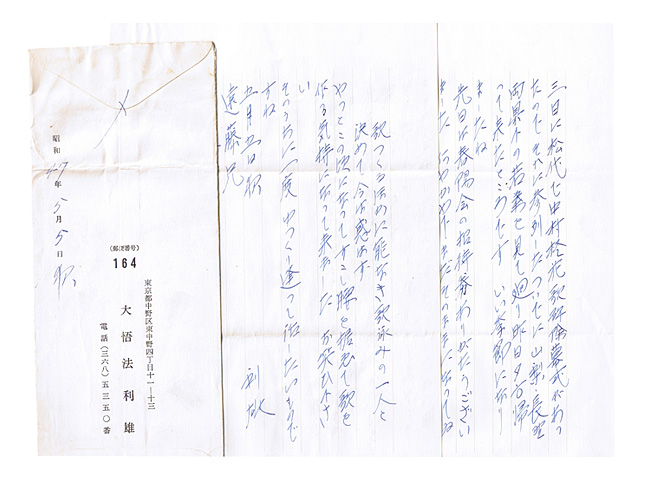 三日に松代で中村柊花歌碑除幕式があつ
たので それに参列したついでに山梨、長野
両県下の若葉を見て廻り昨日夕方帰
って来たところです いゝ季節になり
ましたね
先日は春陽会の招待券ありがたうござい
ました
歌つくるほかに能なき歌詠みの一人と
決めて今は惑はず
やつとこの頃になつてすこし腰を据ゑて歌を
作る気持になつて来ました お笑ひ下さ
い
そのうちに一度ゆつくり逢つて話したいもので
すね
五月五日 朝
利雄
遠藤兄
昭和47年5月5日 朝
(郵便番号)
164
東京都中野区東中野四丁目十一ー十三
大悟法利雄
電話(三六八)五三五〇番